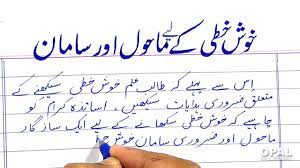 خوش خطی کے لیے ماحول اور سامان
اس سے پہلے کہ طالب علم خوش خطی سیکھنے کے
متعلق ضروری ہدایات سیکھیں، اساتذہ کرام کو
چاہیے کہ خوش خطی سکھانے کے لیے ایک سازگار
ماحول اور ضروری سامان خوش
OPAL